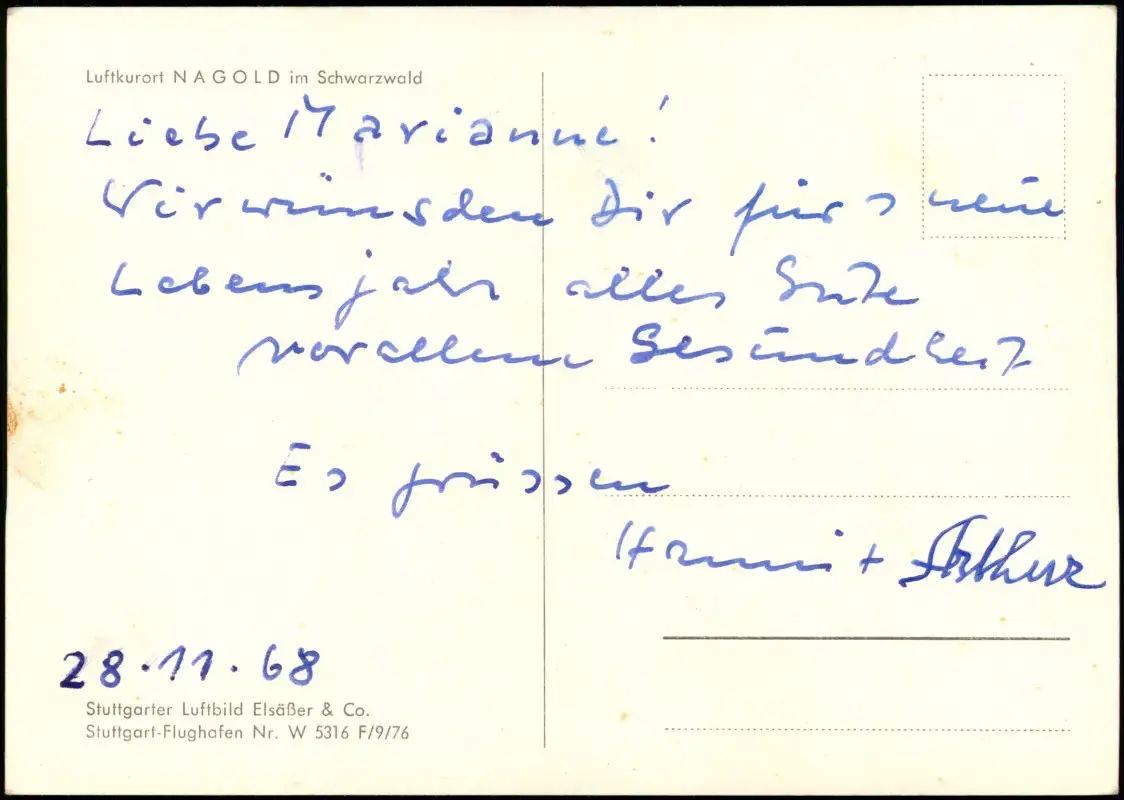 Luftkurort NAGOLD im Schwarzwald
Liebe Marianne!
Wir wünsden Dir für s neue
Lebensjahr alles Gute
vorallem Gesundheit
Es grüssen
Hanni + Arthur
28.11.68
Stuttgarter Luftbild Elsäßer & Co.
Stuttgart-Flughafen Nr. W 5316 F/9/76